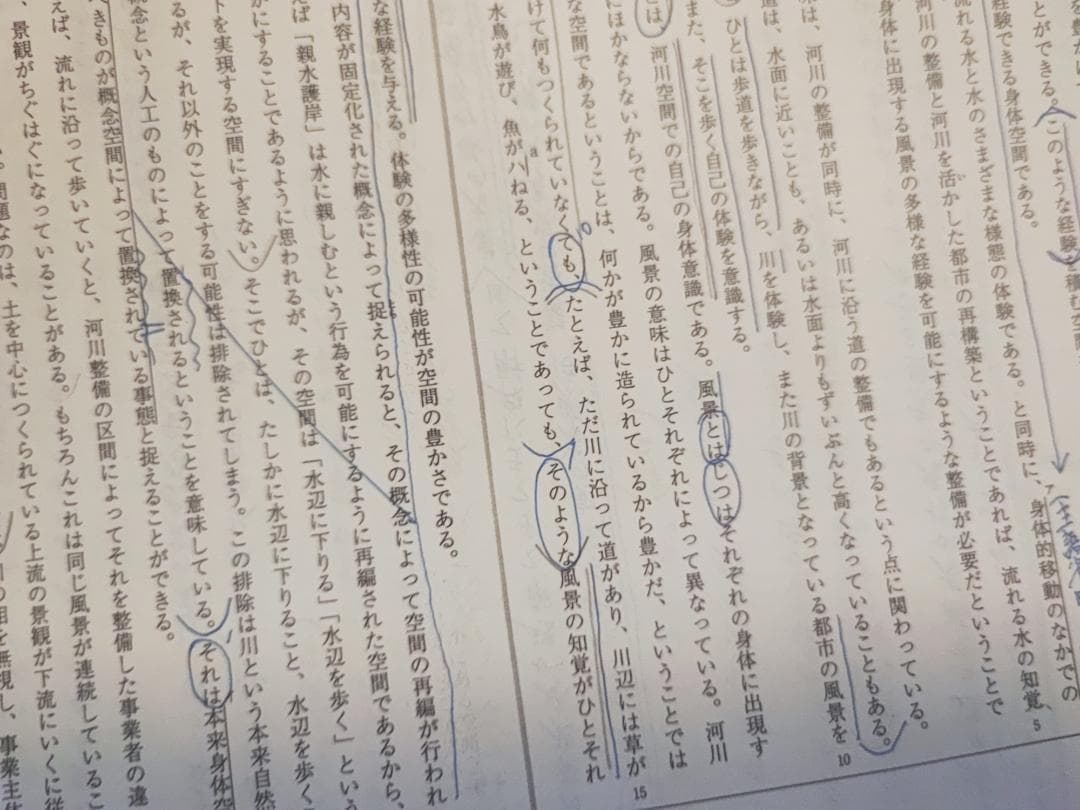 を豊か
とができる。このような経験を積む空間
経験できる身体空間である。
流れる水と水のさまざまな様態の体験である。と同時に、身体的移動のなかでの
河川の整備と河川を活かした都市の再構築ということであれば、流れる水の知覚、
身体に出現する風景の多様な経験を可能にするような整備が必要だということで
は、河川の整備が同時に、河川に沿う道の整備でもあるという点に関わっている。
道は、水面に近いことも、あるいは水面よりもずいぶんと高くなっていることもある。
ひとは歩道を歩きながら、川を体験し、また川の背景となっている都市の風景を
また、そこを歩く自己の体験を意識する。
とは、河川空間での自己の身体意識である。風景とはじつはそれぞれの身体に出現す
にほかならないからである。風景の意味はひとそれぞれによって異なっている。河川
な空間であるということは、何かが豊かに造られているから豊かだ、ということでは
けて何もつくられていなくても、たとえば、ただ川に沿って道があり、川辺には草が
水鳥が遊び、魚がハねる、ということであっても、そのような風景の知覚がひとそれ
な経験を与える。体験の多様性の可能性が空間の豊かさである。
内容が固定化された概念によって捉えられると、その概念によって空間の再編が行われ
えば「親水護岸」は水に親しむという行為を可能にするように再編された空間であるから、
かにすることであるように思われるが、その空間は「水辺に下りる」「水辺を歩く」という
下を実現する空間にすぎない。そこでひとは、たしかに水辺に下りること、水辺を歩く
るが、それ以外のことをする可能性は排除されてしまう。この排除は川という本来自然
概念という人工のものによって置換されるということを意味している。それは本来身体空
べきものが概念空間によって置換されている事態と捉えることができる。
えば、流れに沿って歩いていくと、河川整備の区間によってそれを整備した事業者の違
、景観がちぐはぐになっていることがある。もちろんこれは同じ風景が連続しているこ
問題なのは、土を中心につくられている上流の景観が下流にいくに従
の相を無視し、事業主体
5
10
15